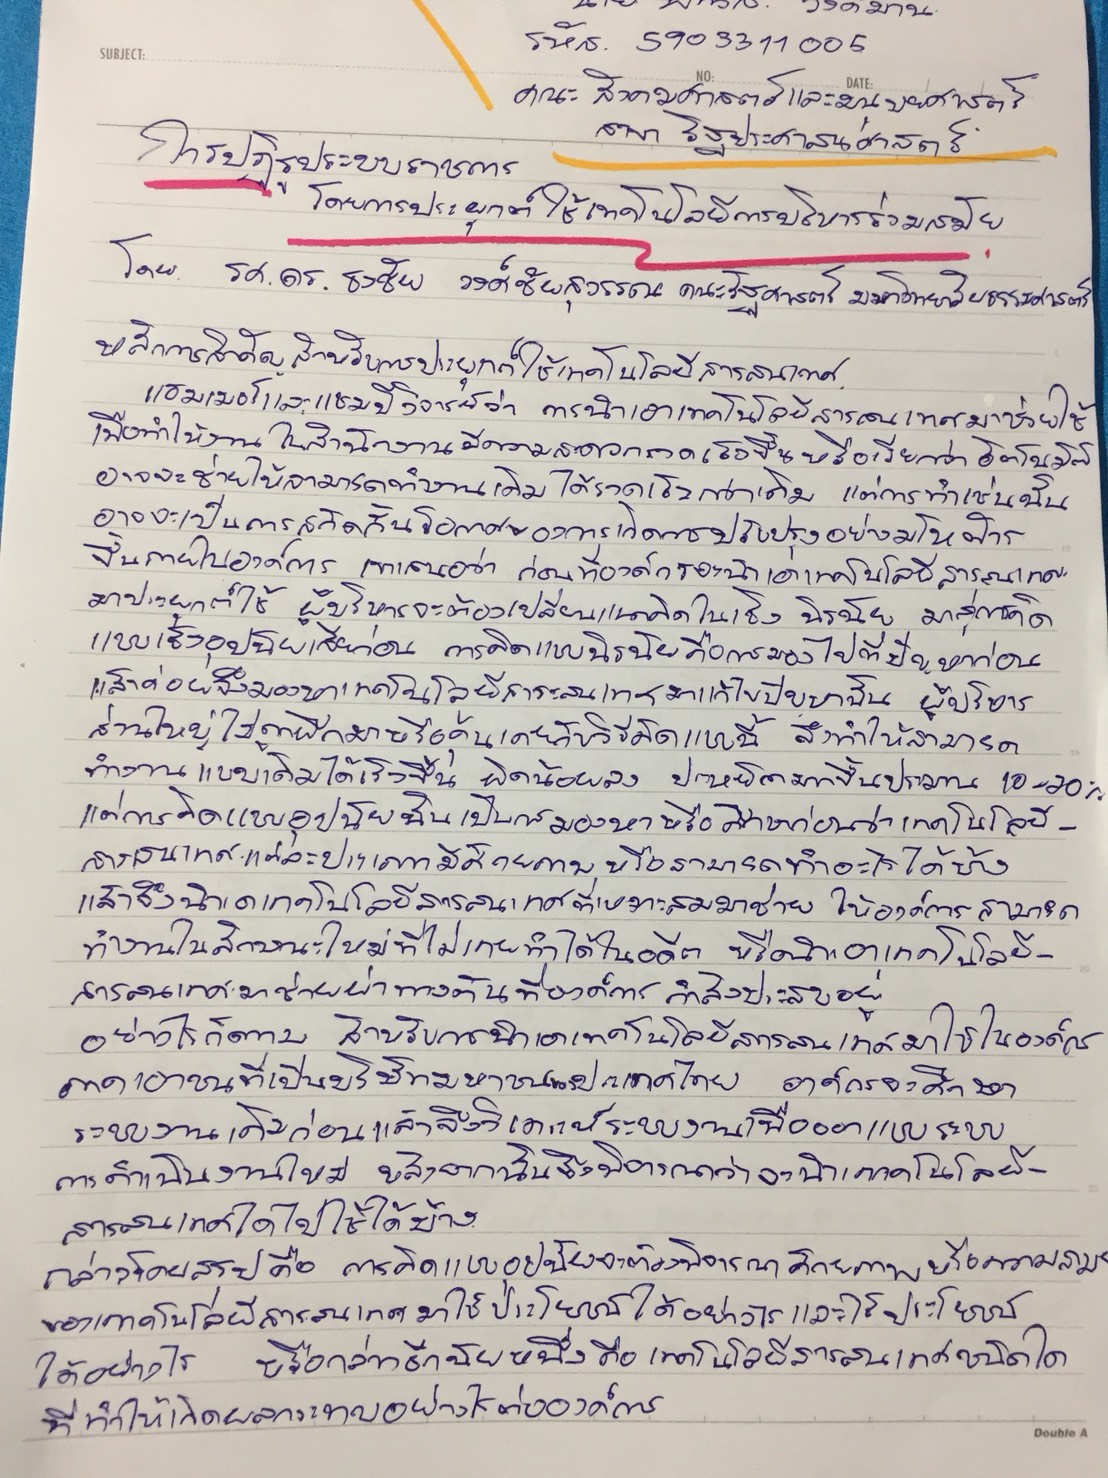 รหัส. 5903311005
SUBJECT:
NO:
DATE:
คณะ สังคมศาสตร์และมนุษยศาสตร์
สาขา รัฐประศาสนศาสตร์
การปฏิรูประบบราชการ
โดยการประยุกต์ใช้เทคโนโลยีการบริหารร่วมสมัย
โดย. รศ.ดร. ธงชัย วงศ์ชัยสุวรรณ คณะรัฐศาสตร์ มหาวิทยาลัยธรรมศาสตร์
หลักการสำคัญสำหรับการประยุกต์ใช้เทคโนโลยีสารสนเทศ
แฮมเมอร์และแชมปี้วิจารย์ว่า การนำเอาเทคโนโลยีสารสนเทศมาช่วยใช้
เพื่อทำให้งานในสำนักงานมีความสะดวกรวดเร็วขึ้นหรือเรียกว่า อัตโนมัติ
อาจจะช่วยให้สามารถทำงานเดิมได้รวดเร็วกว่าเดิม แต่การทำเช่นนั้น
อาจจะเป็นการสกัดกั้นโอกาสของการเกิดการปรับปรุงอย่างมโหฬาร
ขึ้นภายในองค์การ เขาเสนอว่า ก่อนที่องค์กรจะนำเอาเทคโนโลยีสารสนเทศ
มาประยุกต์ใช้ ผู้บริหารจะต้องเปลี่ยนแนวคิดในเชิง นิรนัย มาสู่การคิด
แบบเชิงอุปนัยเสียก่อน การคิดแบบนิรนัยคือการมองไปที่ปัญหาก่อน
แล้วค่อยจึงมองหาเทคโนโลยีสาระสนเทศมาแก้ไขปัญหานั้น ผู้บริหาร
ส่วนใหญ่ไปถูกฝึกมาหรือคุ้นเคยกับวิธีคิดแบบนี้ จึงทำให้สามารถ
ทำงานแบบเดิมได้เร็วขึ้น ผิดน้อยลง ประหยัดมากขึ้นประมาน 10-20%
แต่การคิดแบบอุปนัยนั้นเป็นการมองหาหรือศึกษาก่อนว่าเทคโนโลยี-
สารสนเทศแต่ละประเภทมีศักยภาพหรือสามารถทำอะไรได้บ้าง
แล้วจึงนำเอาเทคโนโลยีสารสนเทศที่เหมาะสมมาช่วย ให้องค์การสามารถ
ทำงานในลักษณะใหม่ที่ไม่เคยทำได้ในอดีต หรือนำเอาเทคโนโลยี-
สารสนเทศมาช่วยผ่าทางตันที่องค์การกำลังประสบอยู่
อย่างไรก็ตาม สำหรับการนำเอาเทคโนโลยีสารสนเทศมาใช้ในองค์กร
ภาคเอาชนที่เป็นบริษัทมหาชนประเทศไทย องค์กรจะศึกษา
ระบบงานเดิมก่อนแล้วจึงวิเคราะห์ระบบงานเพื่อออกแบบระบบ
การดำเนินงานใหม่ หลังจากนั้นจึงพิจารณาว่าจะนำเทคโนโลยี-
สารสนเทศใดไปใช้ได้บ้าง
กล่าวโดยสรุปคือ การคิดแบบอุปนัยจะต้องพิจารณาศักยภาพหรือความสาม
ของเทคโนโลยีสารสนเทศมาใช้ประโยชน์ได้อย่างไรและใช้ประโยชน์
ได้อย่างไร หรือกล่าวอีกนัยหนึ่งคือ เทคโนโลยีสารสนเทศชนิดใด
ที่ทำให้เกิดผลกระทบอย่างไรต่อองค์การ
Double A